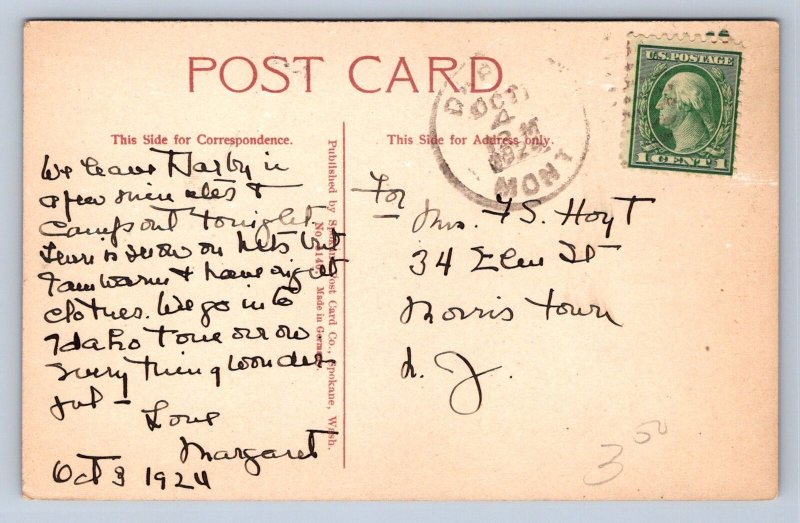 POST CARD
This Side for Correspondence.
This Side for Address only.
We leave Darby in
a few minutes &
Camp out tonight.
There is snow on Mts but
I am warm & have right
clothes. We go into
Idaho tomorrow
Every thing wonder
ful – Love
Margaret
Oct 3 1924
Published by Post Card Co., Spokane, Wash.
No. Made in Germany.
OCT
4
MONT
U.S. POSTAGE
1 CENT 1
For
Mrs. F S. Hoyt
34 Elm St
Morris town
N. J.
3 50